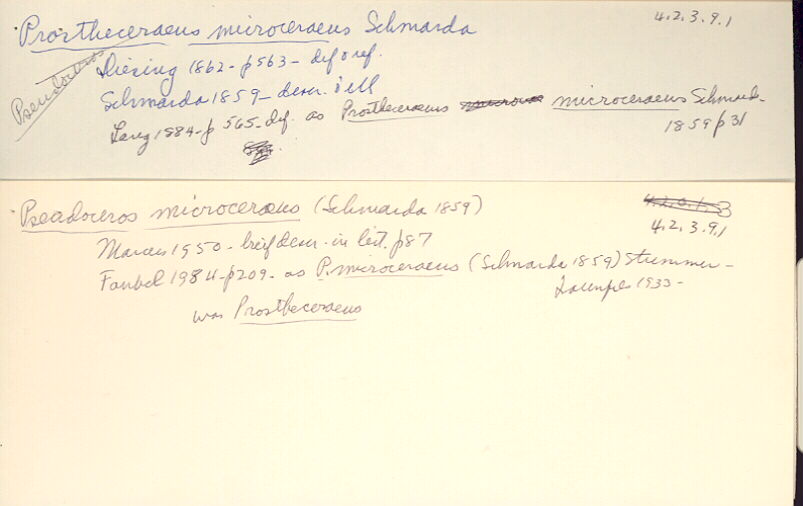 Prostheceraeus microceraeus Schmarda
4.2.3.9.1
Pseudoceros
Diesing 1862 - p563 - def & ref.
Schmarda 1859 - descr. & ill
Lang 1884 - p 565 - def. as Prostheceraeus microceraeus Schmarda
1859 p 31
Pseudoceros microceraeus (Schmarda 1859)
4.2.3.9.1
Marcus 1950 - brief descr. in lit. p87
Faubel 1984 - p209 - as P. microceraeus (Schmarda 1859) Stummer-
Traunfels 1933 -
was Prostheceraeus